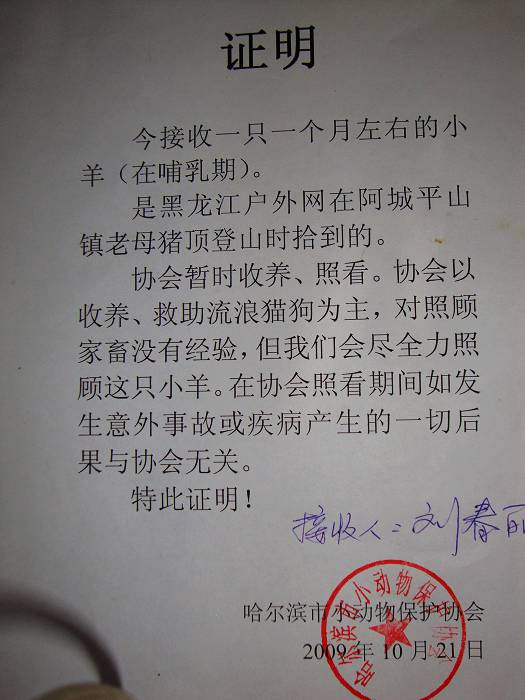 证明
今接收一只一个月左右的小
羊（在哺乳期）。
是黑龙江户外网在阿城平山
镇老母猪顶登山时拾到的。
协会暂时收养、照看。协会以
收养、救助流浪猫狗为主，对照顾
家畜没有经验，但我们会尽全力照
顾这只小羊。在协会照看期间如发
生意外事故或疾病产生的一切后
果与协会无关。
特此证明！
接收人：刘春丽
哈尔滨市小动物保护协会
2009 年 10 月 21 日
哈尔滨市小动物保护协会